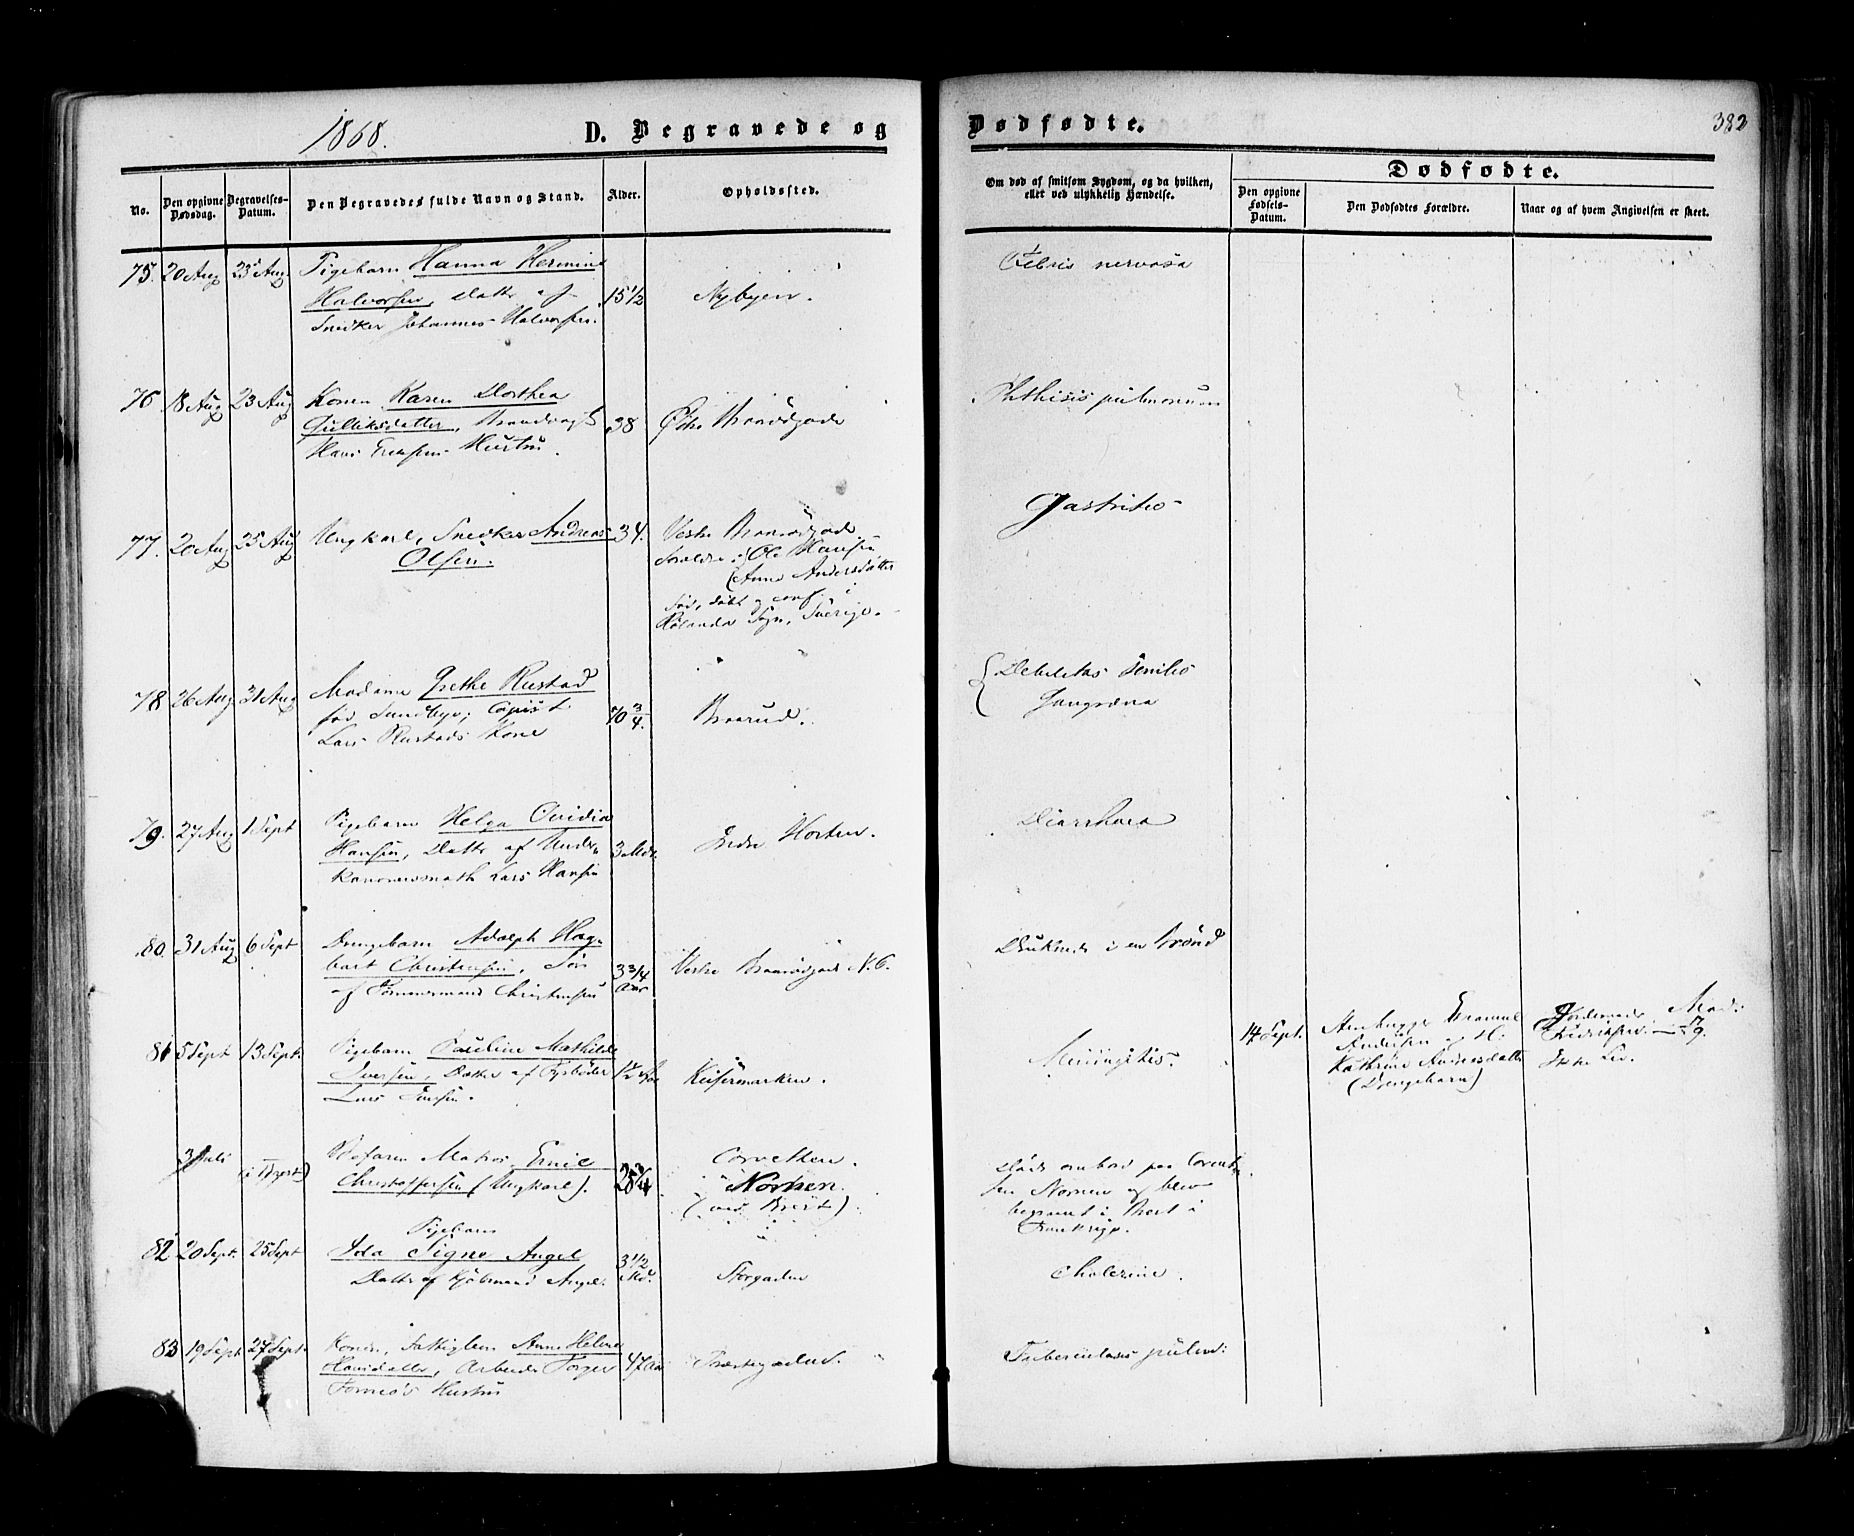 1868.
D. Begravede og
Dødfødte.
382
No.
Den opgivne Dødsdag.
Begravelses-Datum.
Den Begravedes fulde Navn og Stand.
Alder.
Opholdssted.
Om død af smitsom Sygdom, og da hvilken, eller ved ulykkelig Hændelse.
Dødfødte.
Den opgivne Fødsels-Datum.
Den Dødfødtes Forældre.
Naar og af hvem Angivelsen er skeet.
75. 20 Aug 23 Aug Pigebarn Hanna Hermine
Halvorsen, Datter af 15 1/2 Nybyen.
Snedker Johannes Halvorsen.
Febris nervosa
76 18 Aug 23 Aug Konen Karen Dorthea
Gulliksdatter, Brandvagt 38 Østre Braarudgade
Hans Hustru.
Phthisis pulmonum
77. 20 Aug 25 Aug Ungkarl, Snedker Andreas 34. Vestre Braarudgade
Olsen. Forældre: Ole Hansen
Anne Andersdatter
fød, døbt og conf. i
Sogn, Sverige.
Gastritis
78 26 Aug 31 Aug Madame Grethe Rustad
fød Sundbye, Copist 70 3/4. Braarud.
Lars Rustads Kone
Debilitas senilis
Gangræna
79. 27 Aug 1 Sept Pigebarn Helga Ovidia
Hansen, Datter af Under- 3 Mdr. Indre Horten.
kanoneersmath Lars Hansen
Diarrhoea
80. 31 Aug 6 Sept Drengebarn Adolph Hag-
bart Christensen, Søn 3 3/4 Aar Vestre Braarudgade N. 6.
af Tømmermand Christensen
Druknede i en Brønd
81 5 Sept 13 Sept. Pigebarn Pauline Mathilde
Iversen, Datter af Fyrbøder 1 1/2 Aar Keisermarken.
Lars
Meningitis.
14 Sept. Stenhugger
Andersen og H.
Kathrine Andersdatter
(Drengebarn)
Jordemoder Mad:
Fredriksen 17/9.
3 Juli (i Brest) Befaren Matros Emil
Christoffersen (Ungkarl). 25 3/4
Corvetten
Nornen.
(ved Brest)
Døde ombord paa Corvet-
ten Nornen og blev
begravet i Brest i
Frankrige.
82 20 Sept. 25 Sept Pigebarn
Ida Signe Angel 3 1/2 Md.
Datter af Kjøbmand Angel. Storgaden
Cholerine.
83 19 Sept. 27 Sept. Konen, Anne Helene
Hansdatter, Arbeider 47 Aar
Hustru
Tuberculosis pulm: